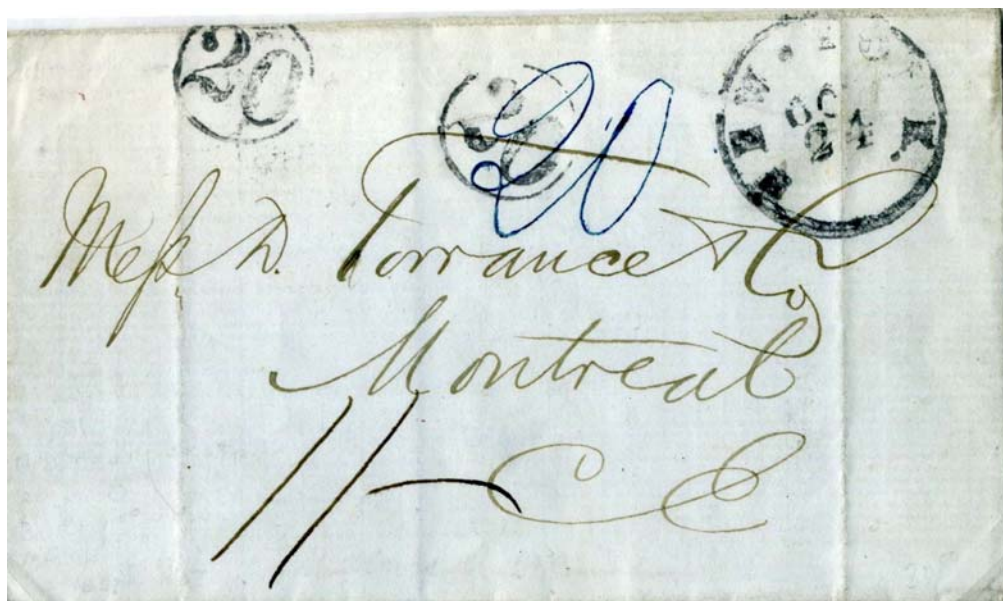 20
20
20
NEW-YORK
OC
24
Mess D. Torrance & Co
Montreal
1/-
C E